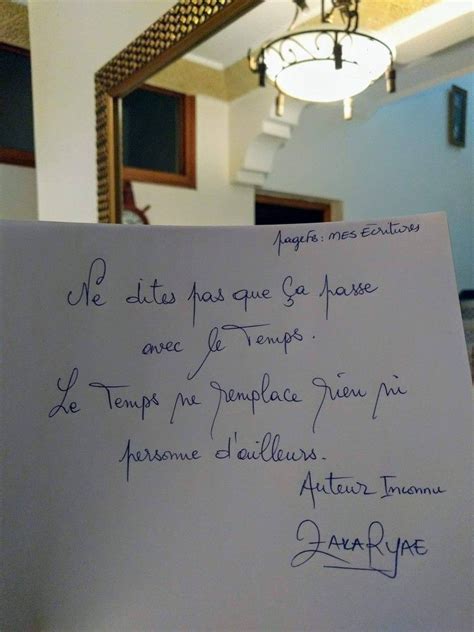 pagefb: MES Écritures
Ne dites pas que ça passe
avec le Temps.
Le Temps ne remplace rien ni
personne d'ailleurs.
Auteur Inconnu
ZAKARYAE